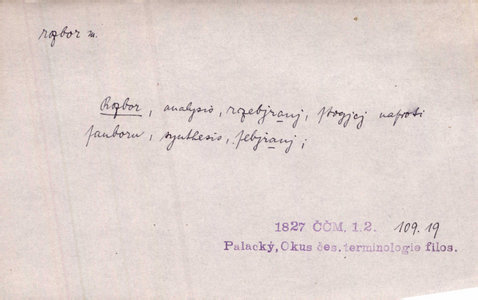 rozbor m.
Rozbor, analysis, rozebjranj; stogjcj naproti
sauboru, synthesis, sebjranj;
1827 ČČM, 1.2. 109.19
Palacký, Okus čes. terminologie filos.